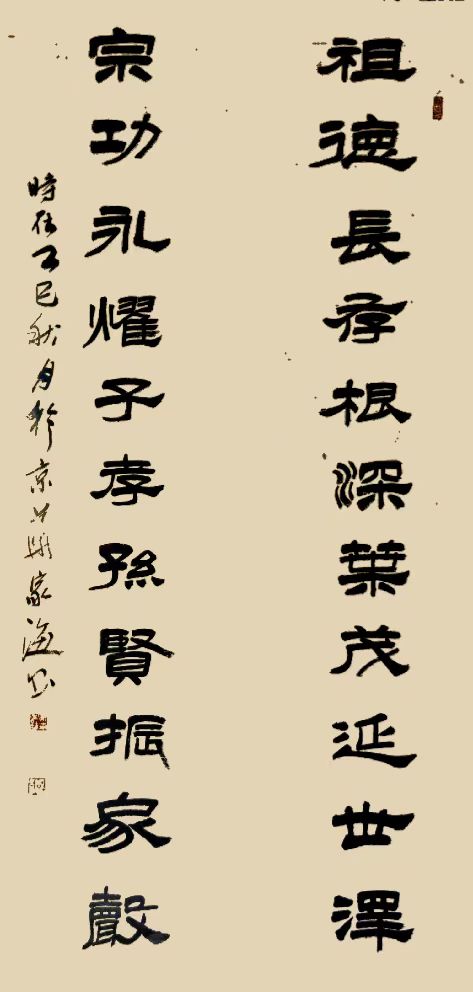 祖德長存根深葉茂延世澤
宗功永耀子孝孫賢振家聲
時在巳秋月於京家海書